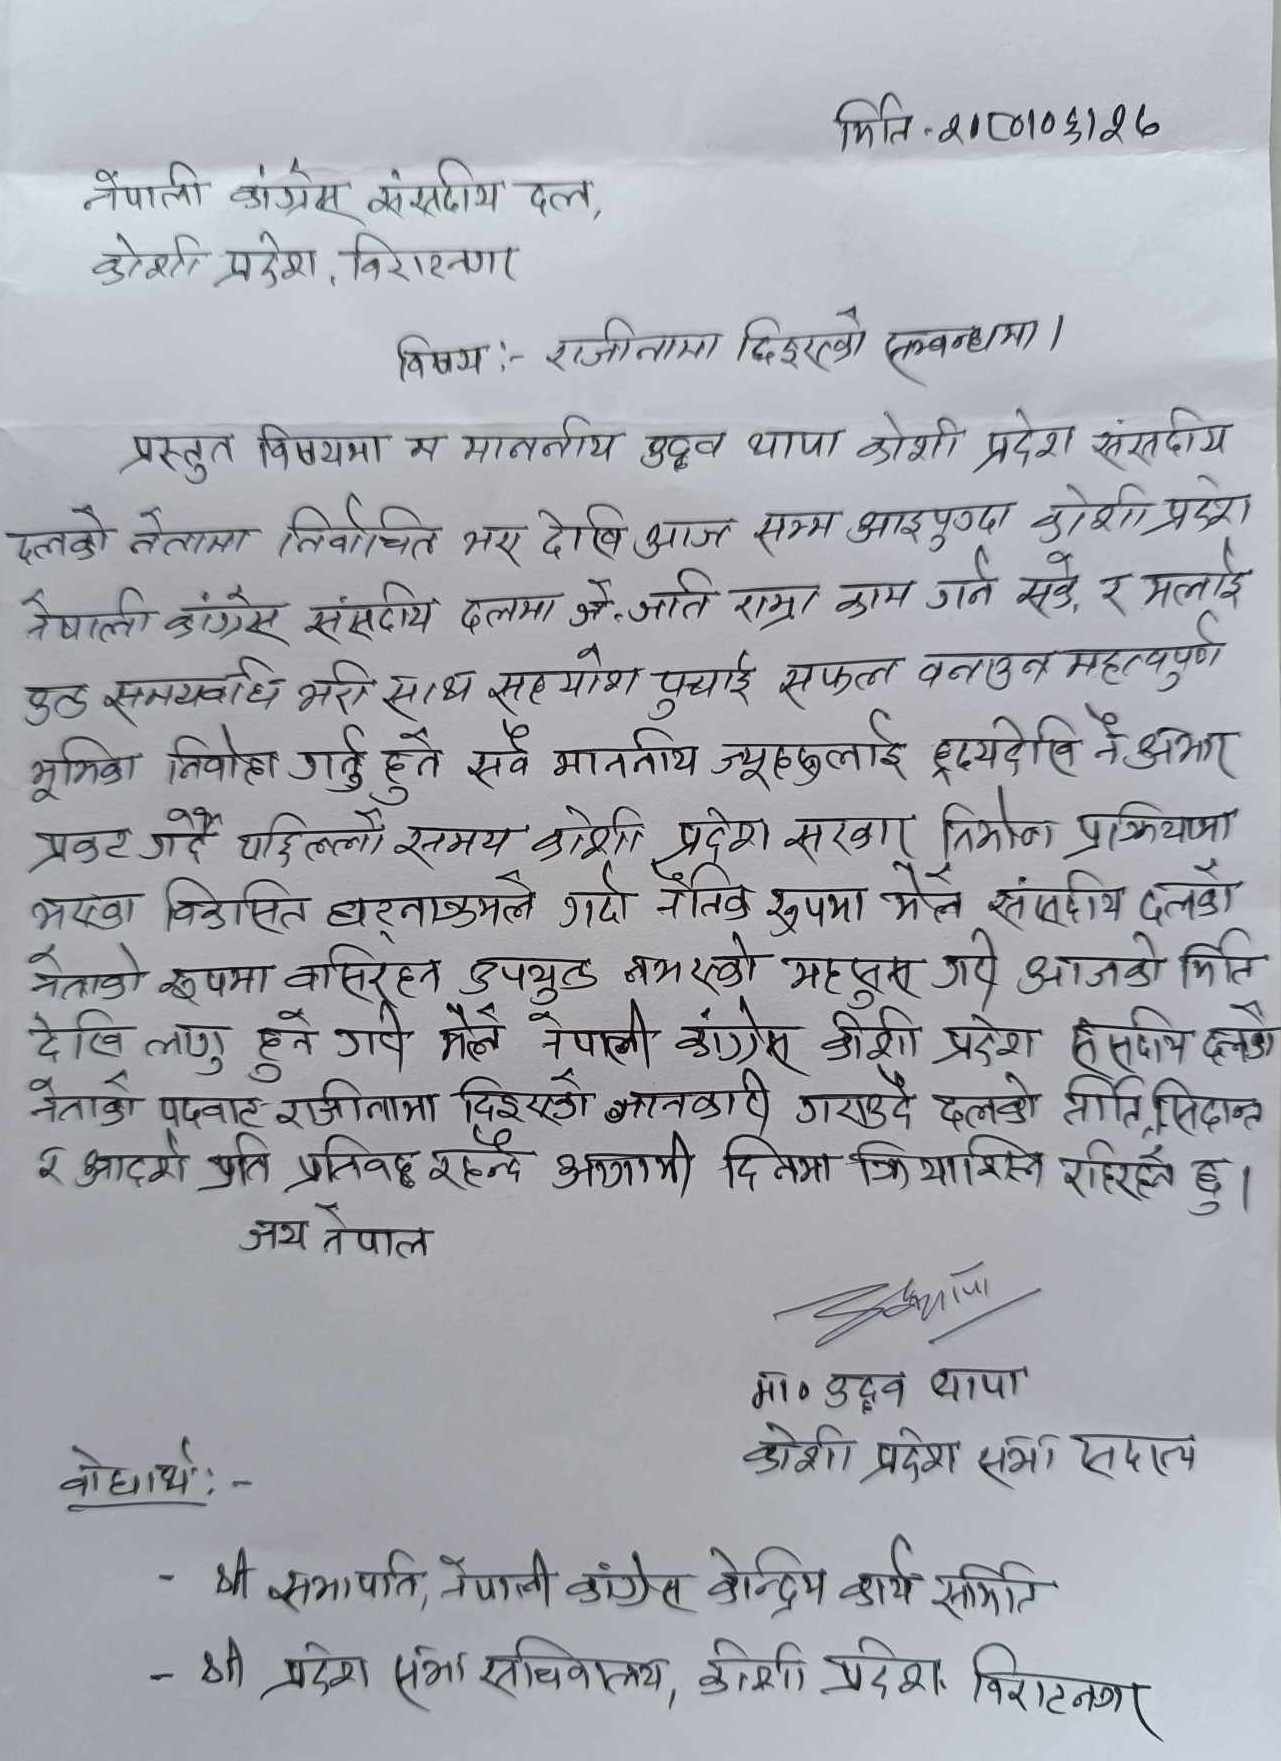 मिति - २०८०।०६।२७
नेपाली कांग्रेस संसदीय दल,
कोशी प्रदेश, विराटनगर
विषय :- राजीनामा दिइएको सम्बन्धमा।
प्रस्तुत विषयमा म माननीय उद्धव थापा कोशी प्रदेश संसदीय
दलको नेतामा निर्वाचित भए देखि आज सम्म आइपुग्दा कोशी प्रदेश
नेपाली कांग्रेस संसदीय दलमा जे.जति राम्रा काम गर्न सकें, र मलाई
उक्त समयावधि भरी साथ सहयोग पुर्‍याई सफल बनाउन महत्वपुर्ण
भूमिका निर्वाहा गर्नु हुने सवै माननीय ज्यूहरुलाई ह्रदयदेखि नै अभार
प्रकट गर्दै पछिल्लो समय कोशी प्रदेश सरकार निर्माण प्रक्रियामा
भएका विकसित घटनाक्रमले गर्दा नैतिक रुपमा मैले संसदीय दलको
नेताको रूपमा वसिरहन उपयुक्त नभएको महसुस गरी आजको मिति
देखि लागु हुने गरी मैले नेपाली कांग्रेस कोशी प्रदेश संसदीय दलको
नेताको पदवाट राजीनामा दिइएको जानकारी गराउदै दलको नीति, सिदान्त
र आदर्श प्रति प्रतिवद्ध रहन्दै अगामी दिनमा क्रियाशिल रहिरहने छु।
जय नेपाल
मा० उद्धव थापा
कोशी प्रदेश सभा सदस्य
वोधार्थ :-
- श्री सभापति, नेपाली कांग्रेस केन्द्रिय कार्य समिति
- श्री प्रदेश सभा सचिवालय, कोशी प्रदेश. विराटनगर